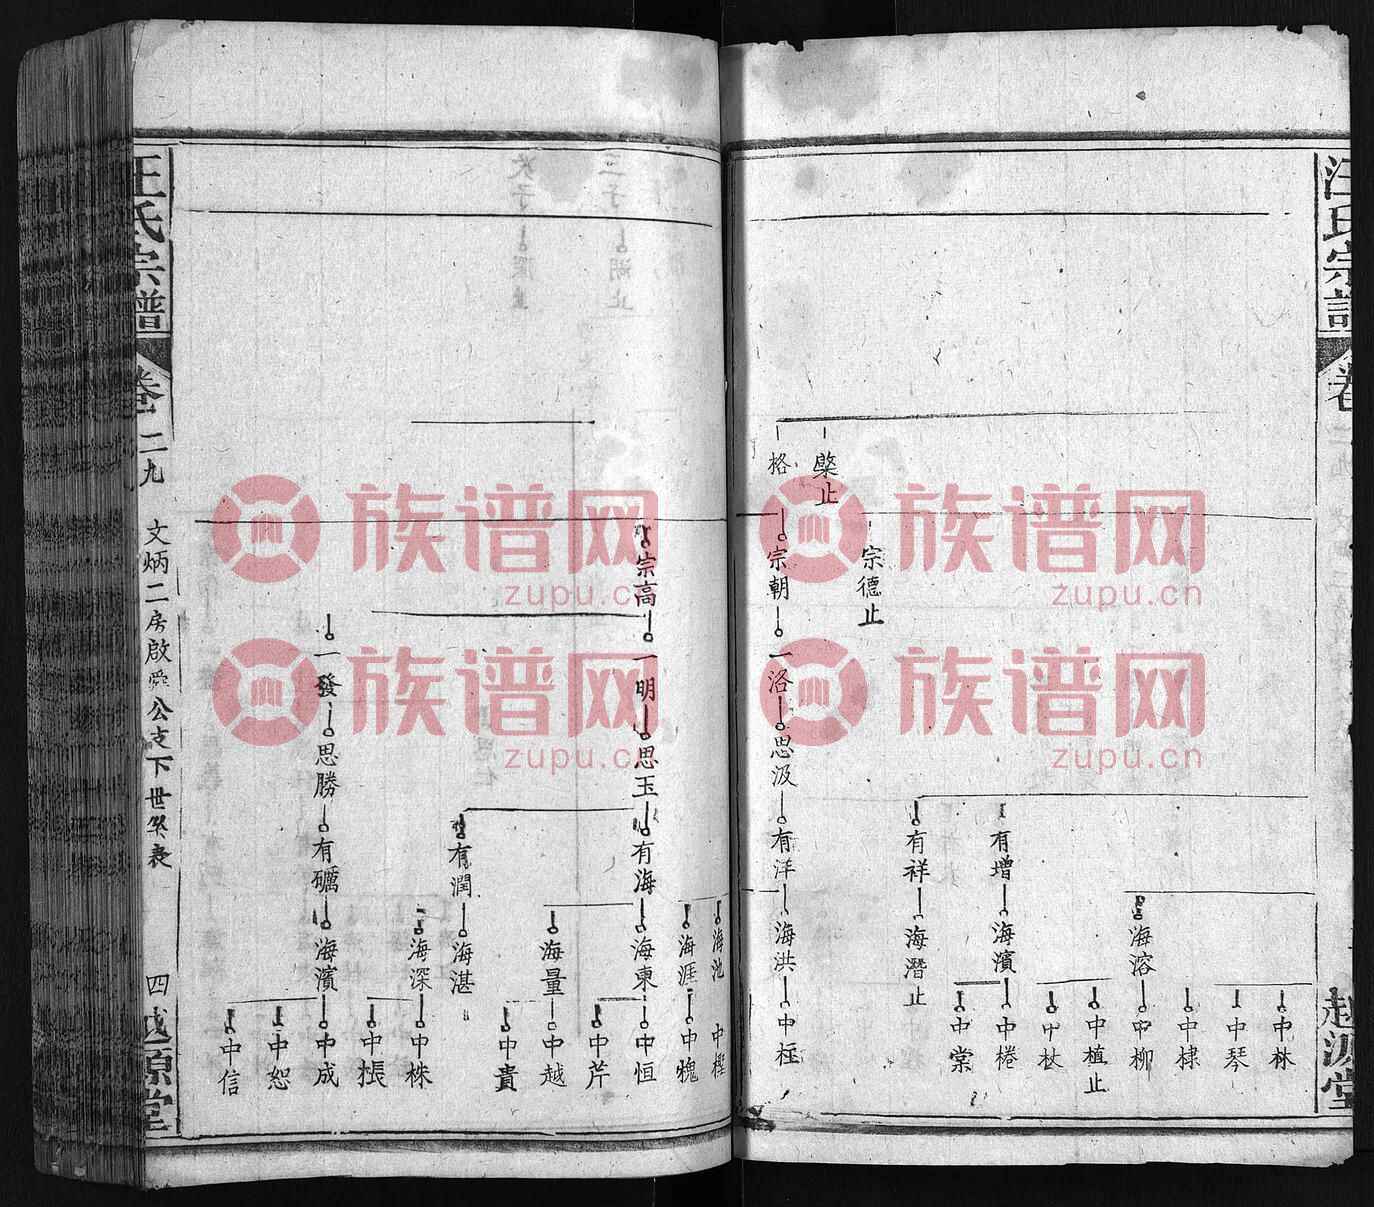 汪氏宗譜
卷
中林
中琴
中棣
海溶
中柳
中植止
中杖
有增
海濱
中棬
中棠
有祥
海潛止
宗德止
槩止
格
宗朝
一洛
思汲
有洋
海洪
中柱
海池
中樫
海涯
中槐
宗高
一明
思玉
有海
海東
中恒
中芹
海量
中越
中貴
有潤
海湛
海深
中株
中棖
一發
思勝
有礪
海濱
中成
中恕
中信
文炳二房啟舜公支下世系表
四
汪氏宗譜
卷二九
越源堂
族谱网
zupu.cn
族谱网
zupu.cn
族谱网
zupu.cn
族谱网
zupu.cn